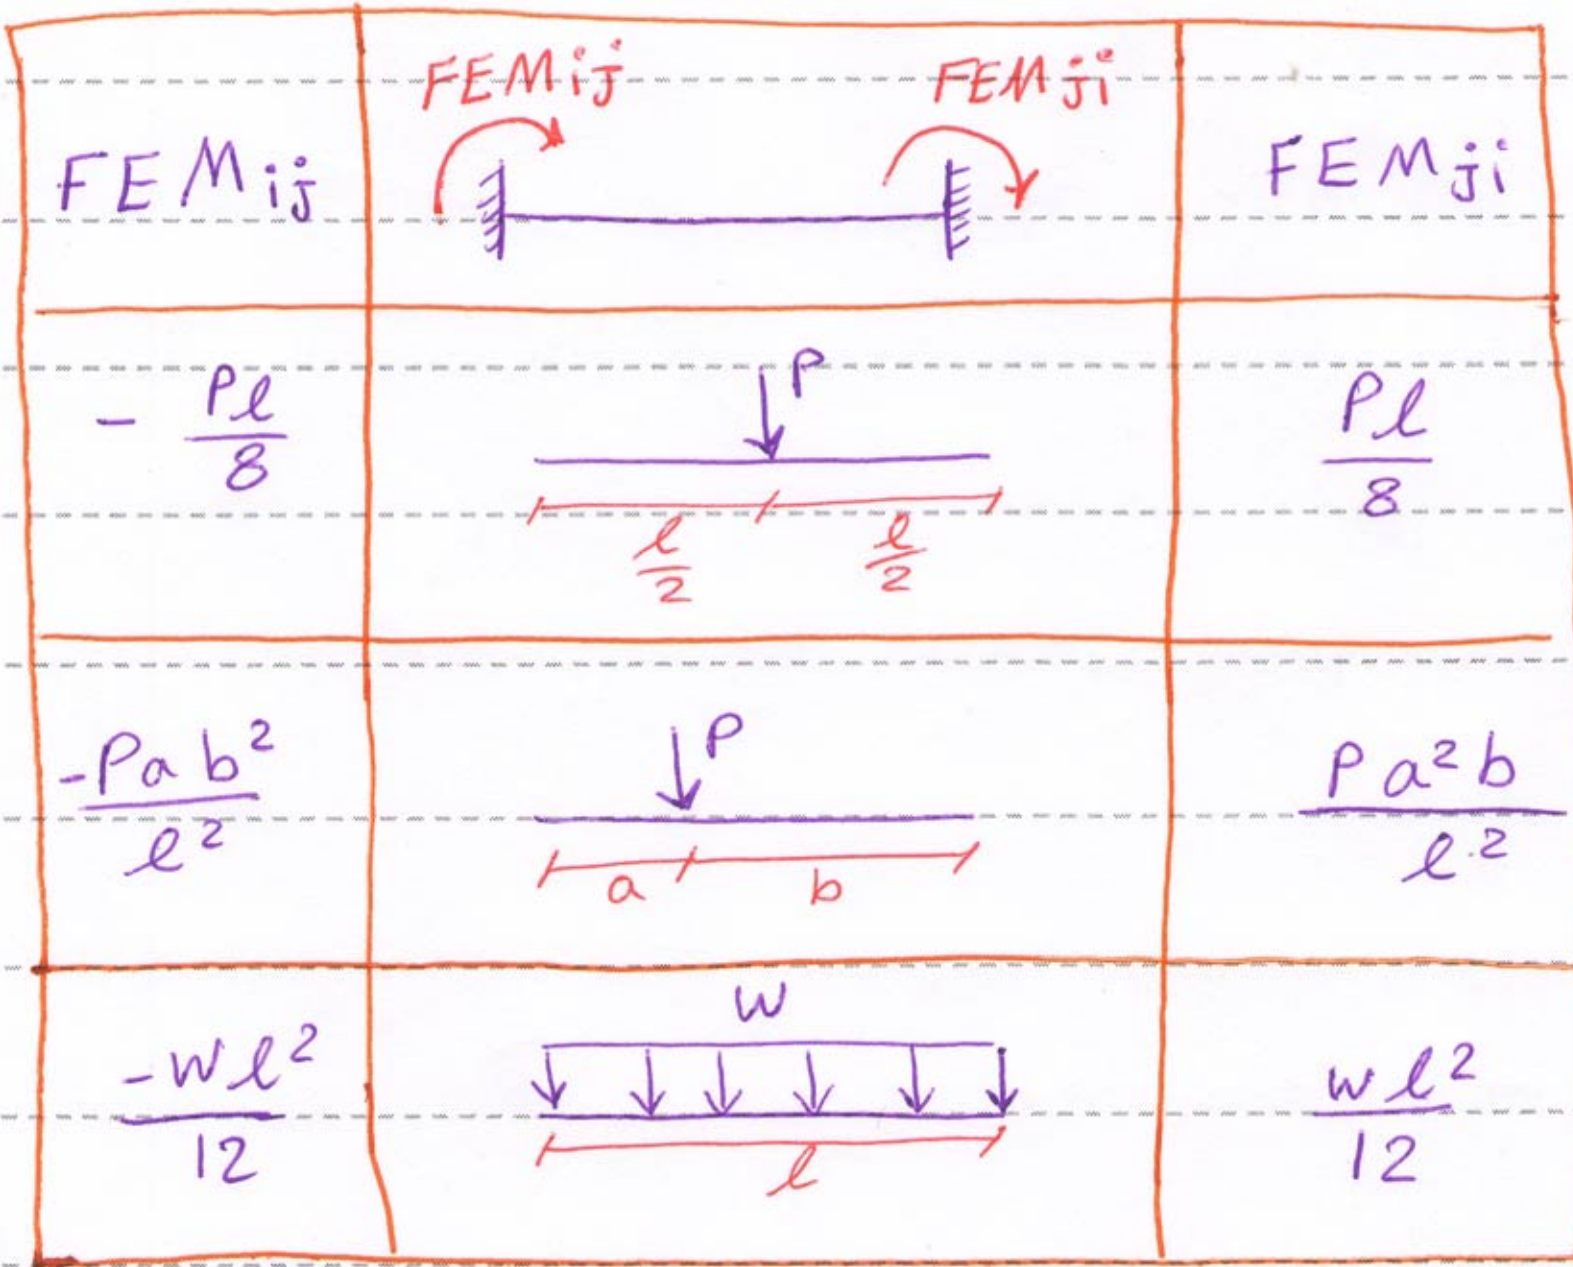 FEMij
FEMij
FEMji
FEMji
- Pl/8
P
l/2
l/2
Pl/8
-Pab²/l²
P
a
b
Pa²b/l²
-wl²/12
w
l
wl²/12